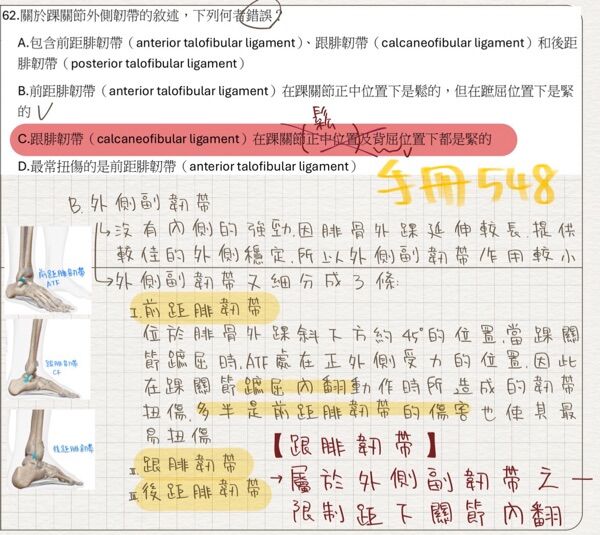 62.關於踝關節外側韌帶的敘述，下列何者錯誤？
A.包含前距腓韌帶（anterior talofibular ligament）、跟腓韌帶（calcaneofibular ligament）和後距
腓韌帶（posterior talofibular ligament）
B.前距腓韌帶（anterior talofibular ligament）在踝關節正中位置下是鬆的，但在蹠屈位置下是緊
的
鬆
C.跟腓韌帶（calcaneofibular ligament）在踝關節正中位置及背屈位置下都是緊的
D.最常扭傷的是前距腓韌帶（anterior talofibular ligament）
手冊548
B.外側副韌帶
沒有內側的強勁,因腓骨外踝延伸較長,提供
較佳的外側穩定,所以外側副韌帶作用較小
外側副韌帶又細分成3條:
前距腓韌帶
ATF
I.前距腓韌帶
位於腓骨外踝斜下方約45°的位置,當踝關
節蹠屈時,ATF處在正外側受力的位置,因此
跟腓韌帶
CF
在踝關節蹠屈內翻動作時所造成的韌帶
扭傷,多半是前距腓韌帶的傷害也使其最
易扭傷
後距腓韌帶
II.跟腓韌帶
III.後距腓韌帶
【跟腓韌帶】
→屬於外側副韌帶之一
限制距下關節內翻